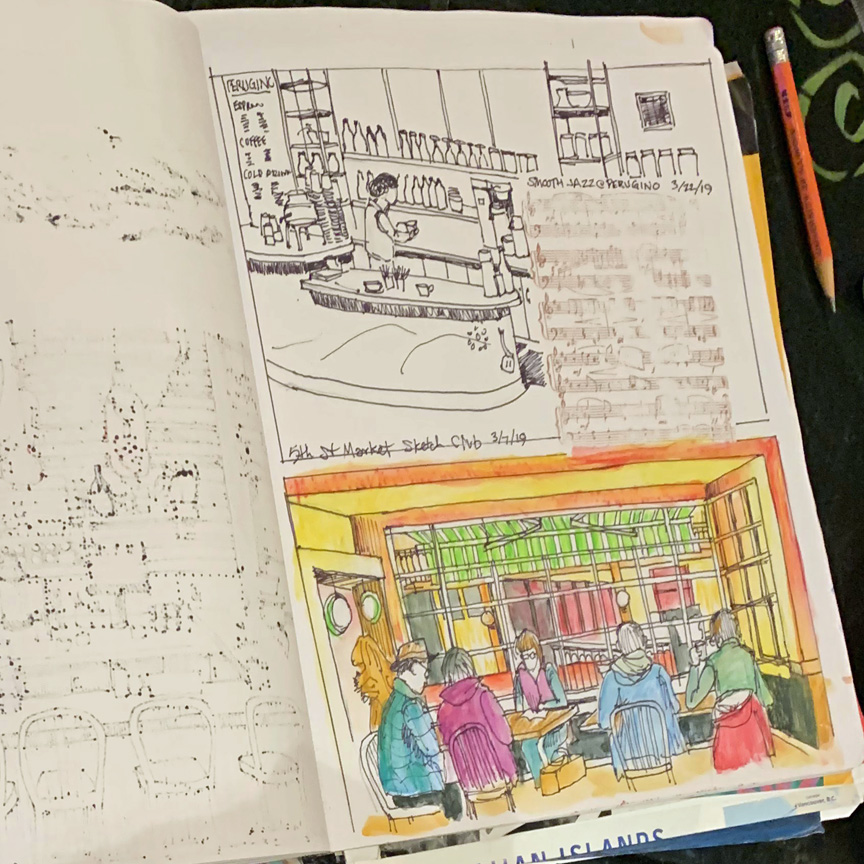 PERUGINO
COFFEE
SMOOTH JAZZ@PERUGINO 3/22/19
5th St Market Sketch Club 3/7/19
ISLANDS